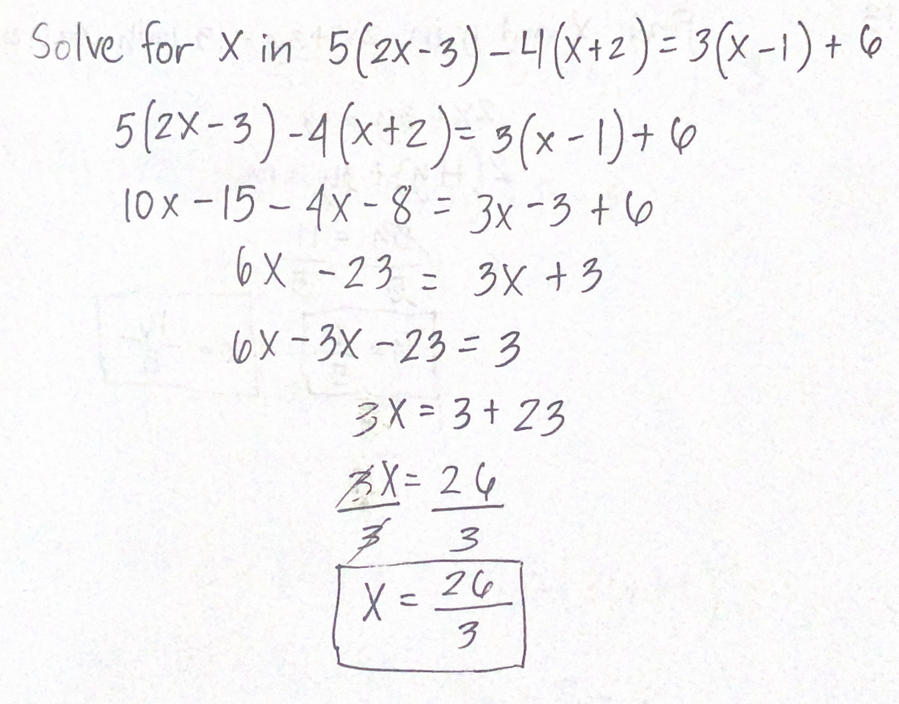 Solve for x in 5(2x-3)-4(x+2)=3(x-1)+6
5(2x-3)-4(x+2)=3(x-1)+6
10x-15-4x-8=3x-3+6
6x-23=3x+3
6x-3x-23=3
3x=3+23
3x/3=26/3
x=26/3